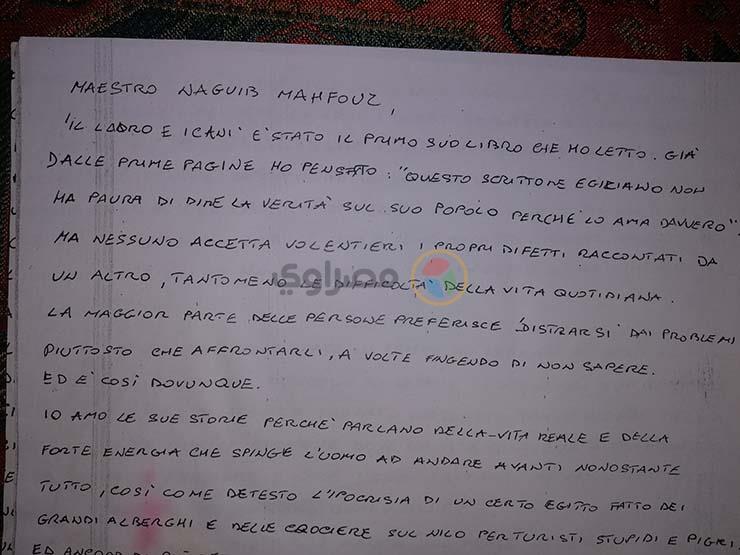 MAESTRO NAGUIB MAHFOUZ,
"IL LADRO E I CANI" E' STATO IL PRIMO SUO LIBRO CHE HO LETTO. GIÀ
DALLE PRIME PAGINE HO PENSATO: "QUESTO SCRITTORE EGIZIANO NON
HA PAURA DI DIRE LA VERITÀ SUL SUO POPOLO PERCHÉ LO AMA DAVVERO".
MA NESSUNO ACCETTA VOLENTIERI I PROPRI DIFETTI RACCONTATI DA
UN ALTRO, TANTOMENO LE DIFFICOLTÀ DELLA VITA QUOTIDIANA.
مصراوي
LA MAGGIOR PARTE DELLE PERSONE PREFERISCE DISTRARSI DAI PROBLEMI
PIUTTOSTO CHE AFFRONTARLI, A VOLTE FINGENDO DI NON SAPERE.
ED E' COSÌ DOVUNQUE.
IO AMO LE SUE STORIE PERCHÈ PARLANO DELLA VITA REALE E DELLA
FORTE ENERGIA CHE SPINGE L'UOMO AD ANDARE AVANTI NONOSTANTE
TUTTO, COSÌ COME DETESTO L'IPOCRISIA DI UN CERTO EGITTO FATTO DEI
GRANDI ALBERGHI E DELLE CROCIERE SUL NILO PER TURISTI STUPIDI E PIGRI.
ED ANCORA